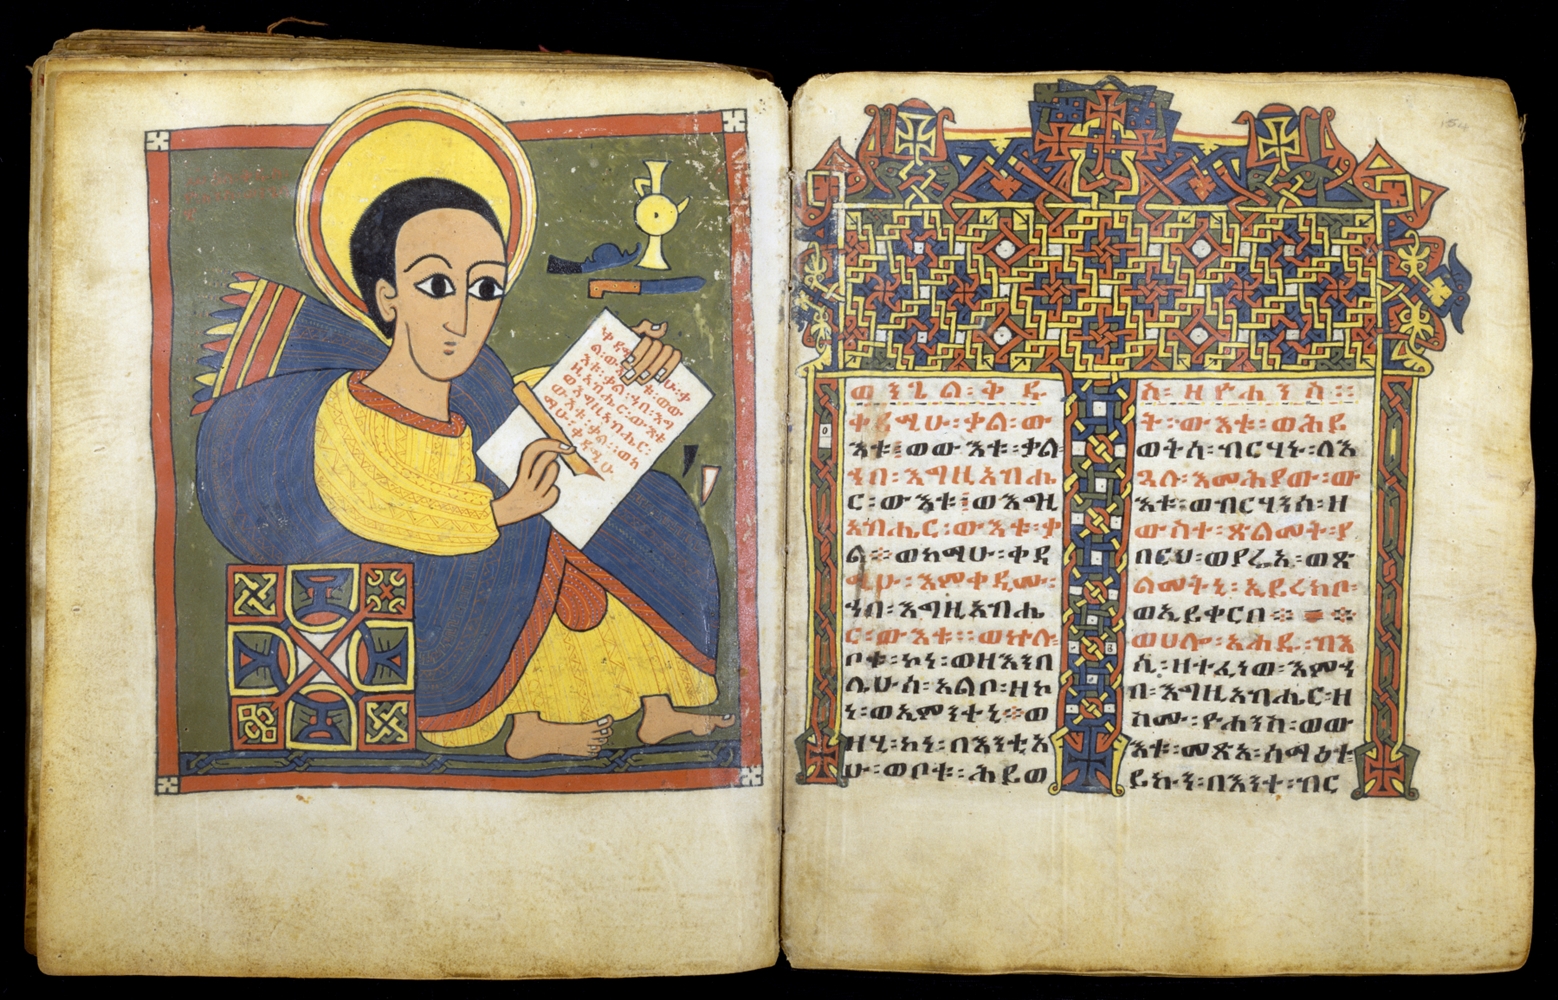 ቀዳሚሁ፡ቃ
ል፡ው እቱ፡ወው
እቱ፡ቃል፡ኀበ፡እግ
ዚአብሔር፡ውእቱ
ወእግዚአብሔር፡
ውእቱ፡ቃል፡ወከ
ማሁ፡ቀዳሚሁ
ወንጌል፡ቅዱ
ቀዳሚሁ፡ቃል፡ው
እቱ፡ወውእቱ፡ቃል፡
ኀበ፡እግዚአብሔ
ር፡ውእቱ፡ወእግዚ
አብሔር፡ውእቱ፡ቃ
ል፡፡ወከማሁ፡ቀዳ
ሚሁ፡እምቀዲሙ፡
ኀበ፡እግዚአብሔ
ር፡ውእቱ፡፡ወኵሉ፡
ቦቱ፡ኮነ፡ወዘእንበ
ሌሁሰ፡አልቦ፡ዘኮ
ነ፡ወኢምንትኒ፡፡ወ
ዘሂ፡ኮነ፡በእንቲአ
ሁ፡ወቦቱ፡ሕይወ
ስ፡ዘዮሐንስ፡፡
ት፡ውእቱ፡ወሕይ
ወትሰ፡ብርሃኑ፡ለእ
ጓለ፡እመሕያው፡ው
እቱ፡ወብርሃንሰ፡ዘ
ውስተ፡ጽልመት፡ያ
በርህ፡ወያሬኢ፡ወጽ
ልመትኒ፡ኢይረክቦ፡
ወኢይቀርቦ፡፡
ወሀሎ፡አሐዱ፡ብእ
ሲ፡ዘተፈነወ፡እምኀ
በ፡እግዚአብሔር፡ዘ
ስሙ፡ዮሐንስ፡ወው
እቱ፡መጽአ፡ሰማዕተ፡
ይኩን፡በእንተ፡ብር